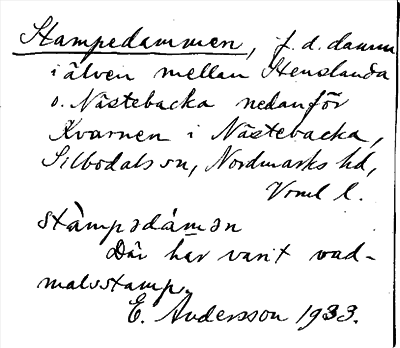 Stampedammen, f.d. damm
i älven mellan Henslanda
o. Nästebacka nedanför
Kvarnen i Nästebacka,
Silbodals sn, Nordmarks hd,
Vrml l.
stàmpədámən
Där har varit vad-
malsstamp.
E. Andersson 1933.